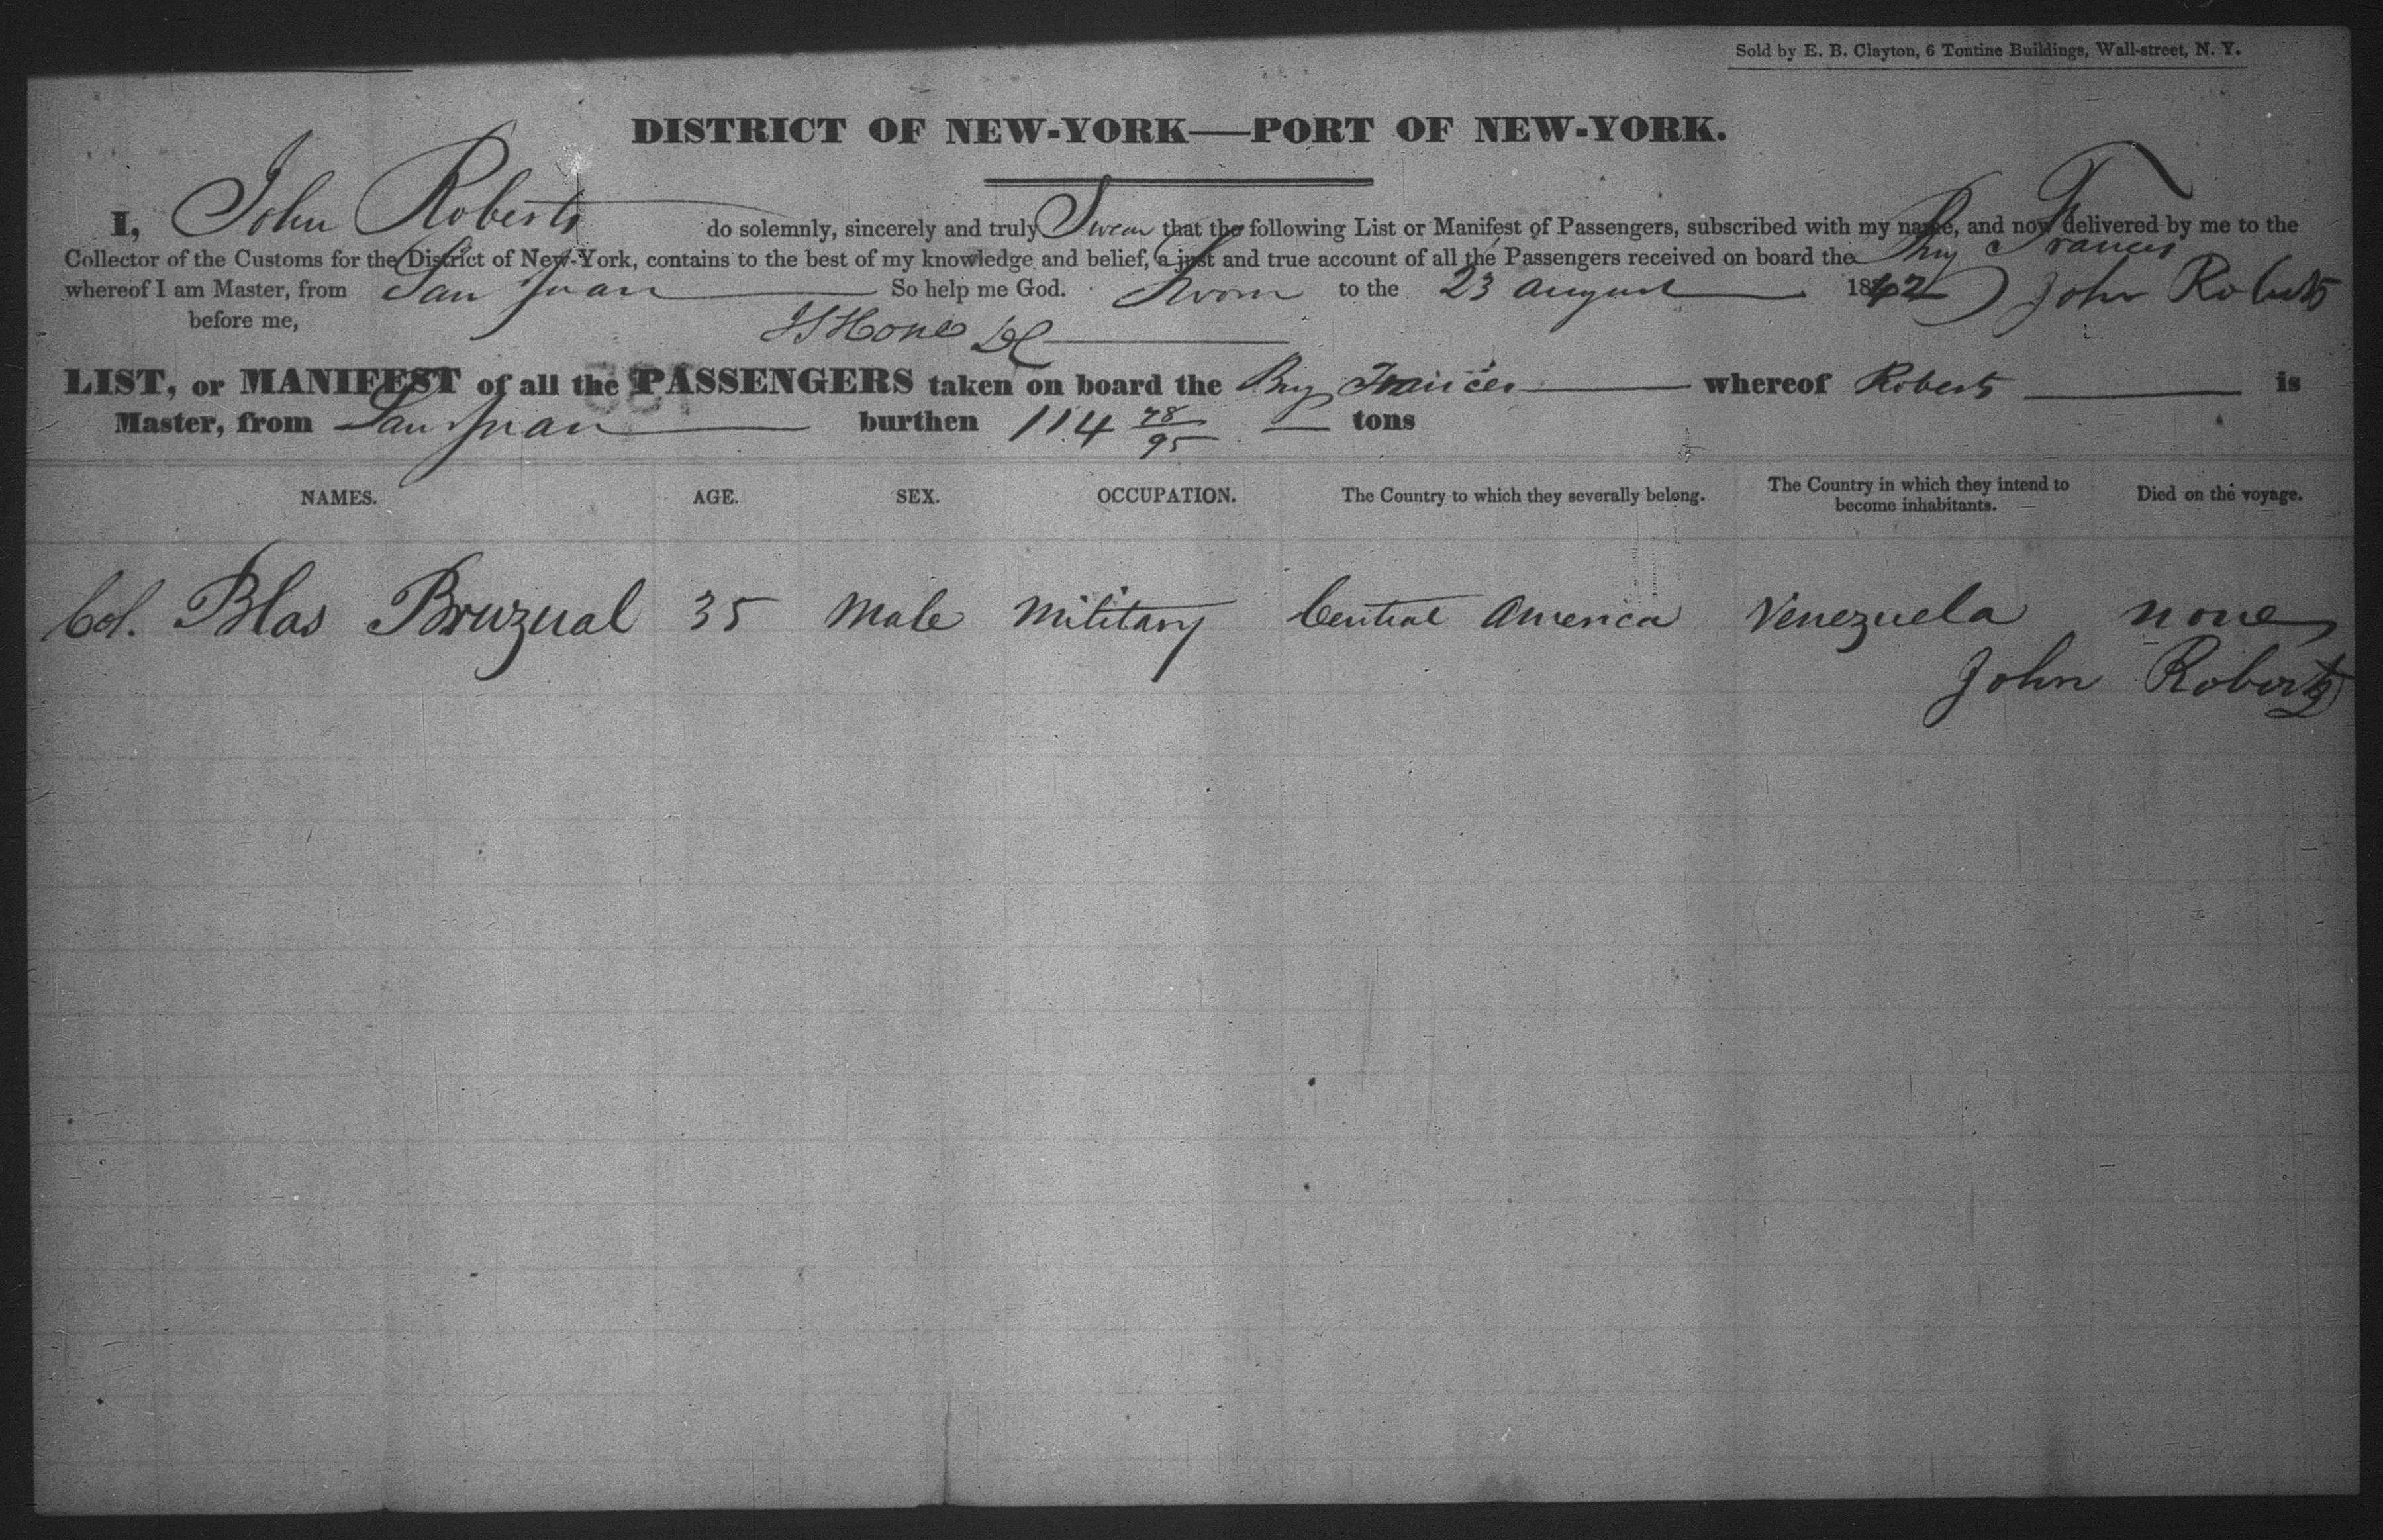 Sold by E. B. Clayton, 6 Tontine Buildings, Wall-street, N. Y.
DISTRICT OF NEW-YORK—PORT OF NEW-YORK.
I, John Roberts do solemnly, sincerely and truly Swear that the following List or Manifest of Passengers, subscribed with my name, and now delivered by me to the
Collector of the Customs for the District of New-York, contains to the best of my knowledge and belief, a just and true account of all the Passengers received on board the Brig Frances
whereof I am Master, from San Juan So help me God. Sworn to the 23 August 1842 John Roberts
before me,
LIST, or MANIFEST of all the PASSENGERS taken on board the Brig Frances whereof Roberts is
Master, from San Juan burthen 114 78/95 tons
NAMES. AGE. SEX. OCCUPATION. The Country to which they severally belong. The Country in which they intend to become inhabitants. Died on the voyage.
Col. Blas Bruzual 35 Male Military Central America Venezuela none
John Roberts